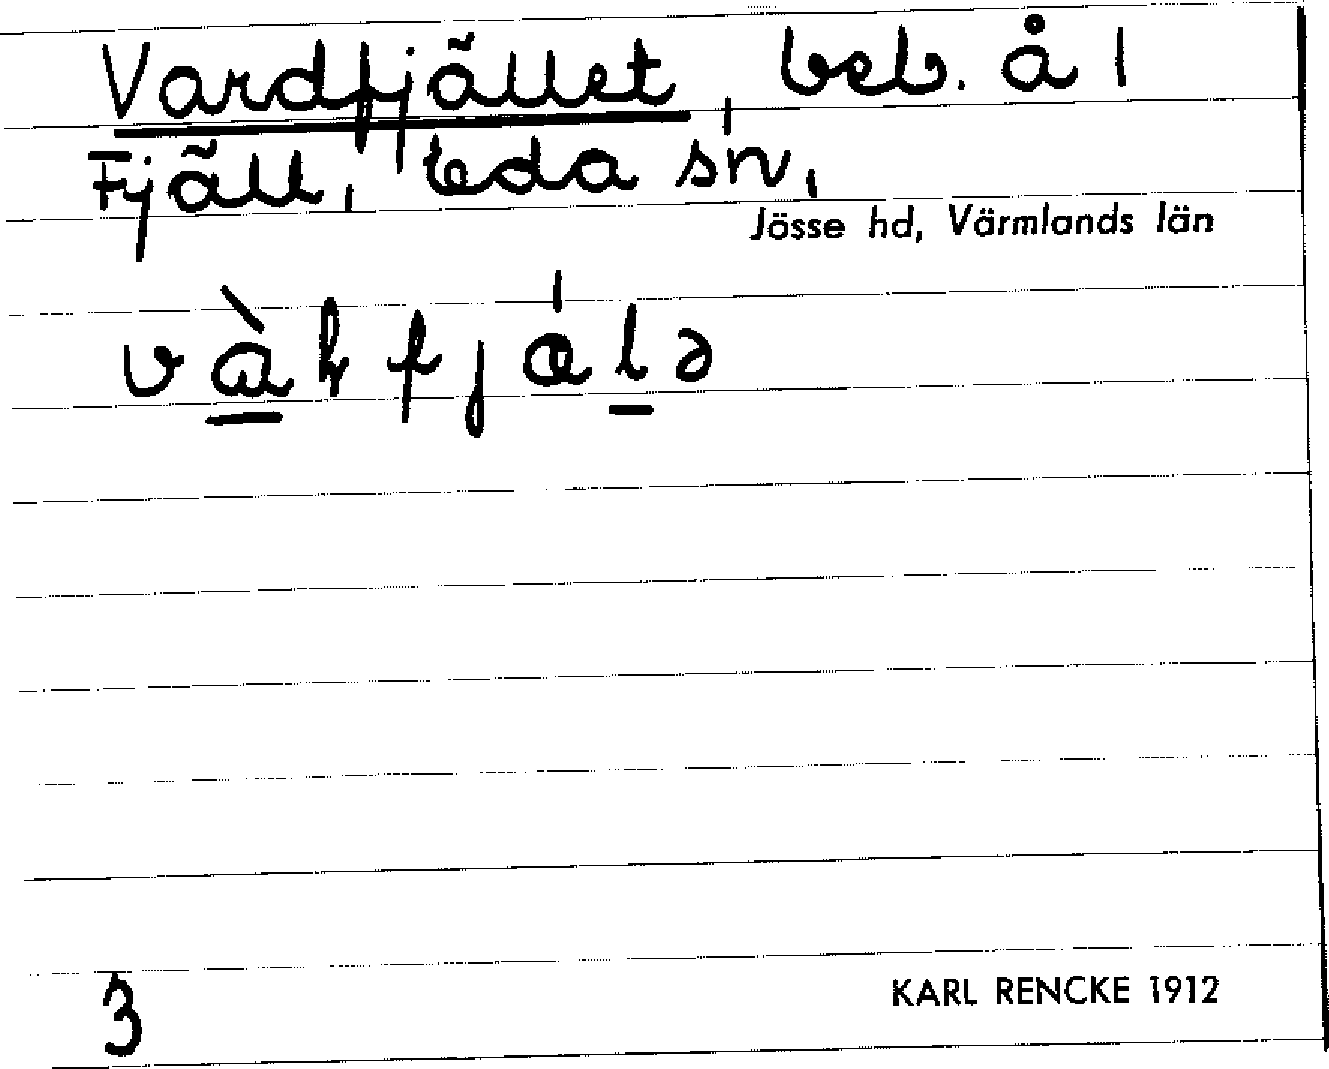 Vardfjället, beb. å 1
Fjäll, Eda sn,
Jösse hd, Värmlands län
3
KARL RENCKE 1912